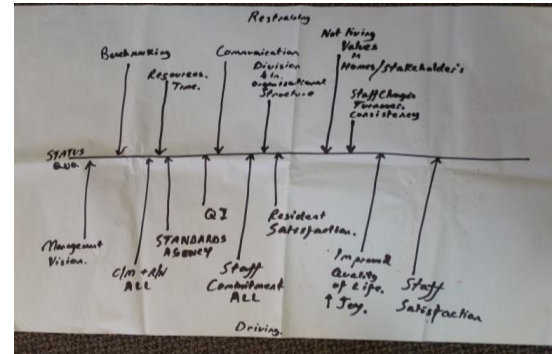 Restraining
Benchmarking
Resources.
Time.
Communication
Division
in
organisational
Structure
Not living
Values
in
Homes/Stakeholder's
Staff Changes
Turnover.
Consistency
STATUS
QUO.
Management
Vision.
C/M + R/N
ALL
STANDARDS
AGENCY
QI
Staff
Commitment
ALL
Resident
Satisfaction.
Improved
Quality
of Life.
↑ Joy.
Staff
Satisfaction
Driving.